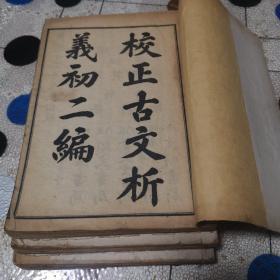 校正古文析
義初二編